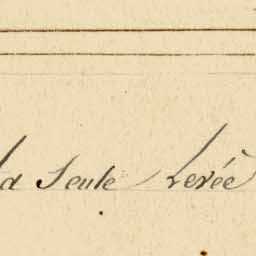 La Seule Levée